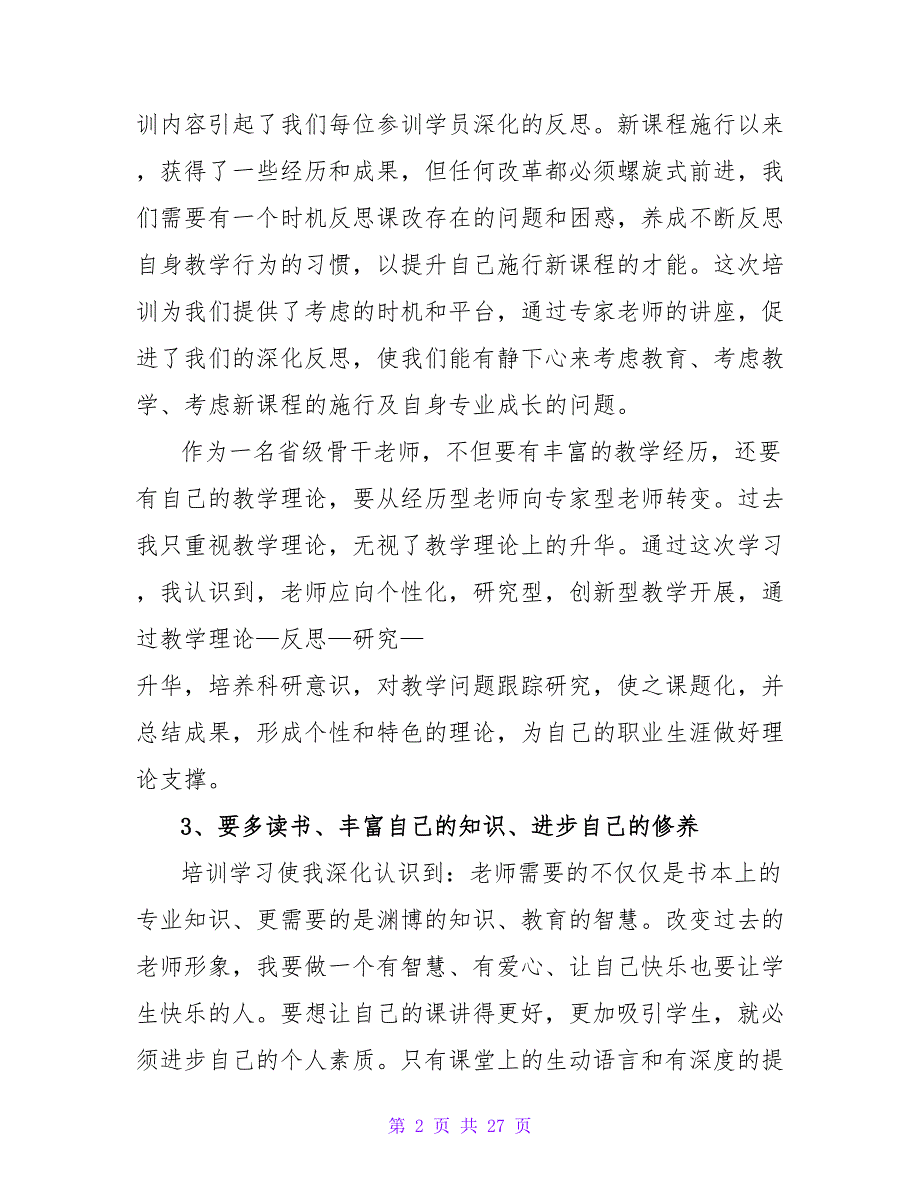 训内容引起了我们每位参训学员深化的反思。新课程施行以来
，获得了一些经历和成果，但任何改革都必须螺旋式前进，我
们需要有一个时机反思课改存在的问题和困惑，养成不断反思
自身教学行为的习惯，以提升自己施行新课程的才能。这次培
训为我们提供了考虑的时机和平台，通过专家老师的讲座，促
进了我们的深化反思，使我们能有静下心来考虑教育、考虑教
学、考虑新课程的施行及自身专业成长的问题。
作为一名省级骨干老师，不但要有丰富的教学经历，还要
有自己的教学理论，要从经历型老师向专家型老师转变。过去
我只重视教学理论，无视了教学理论上的升华。通过这次学习
，我认识到，老师应向个性化，研究型，创新型教学开展，通
过教学理论—反思—研究—
升华，培养科研意识，对教学问题跟踪研究，使之课题化，并
总结成果，形成个性和特色的理论，为自己的职业生涯做好理
论支撑。
3、要多读书、丰富自己的知识、进步自己的修养
培训学习使我深化认识到：老师需要的不仅仅是书本上的
专业知识、更需要的是渊博的知识、教育的智慧。改变过去的
老师形象，我要做一个有智慧、有爱心、让自己快乐也要让学
生快乐的人。要想让自己的课讲得更好，更加吸引学生，就必
须进步自己的个人素质。只有课堂上的生动语言和有深度的提
第 2 页 共 27 页